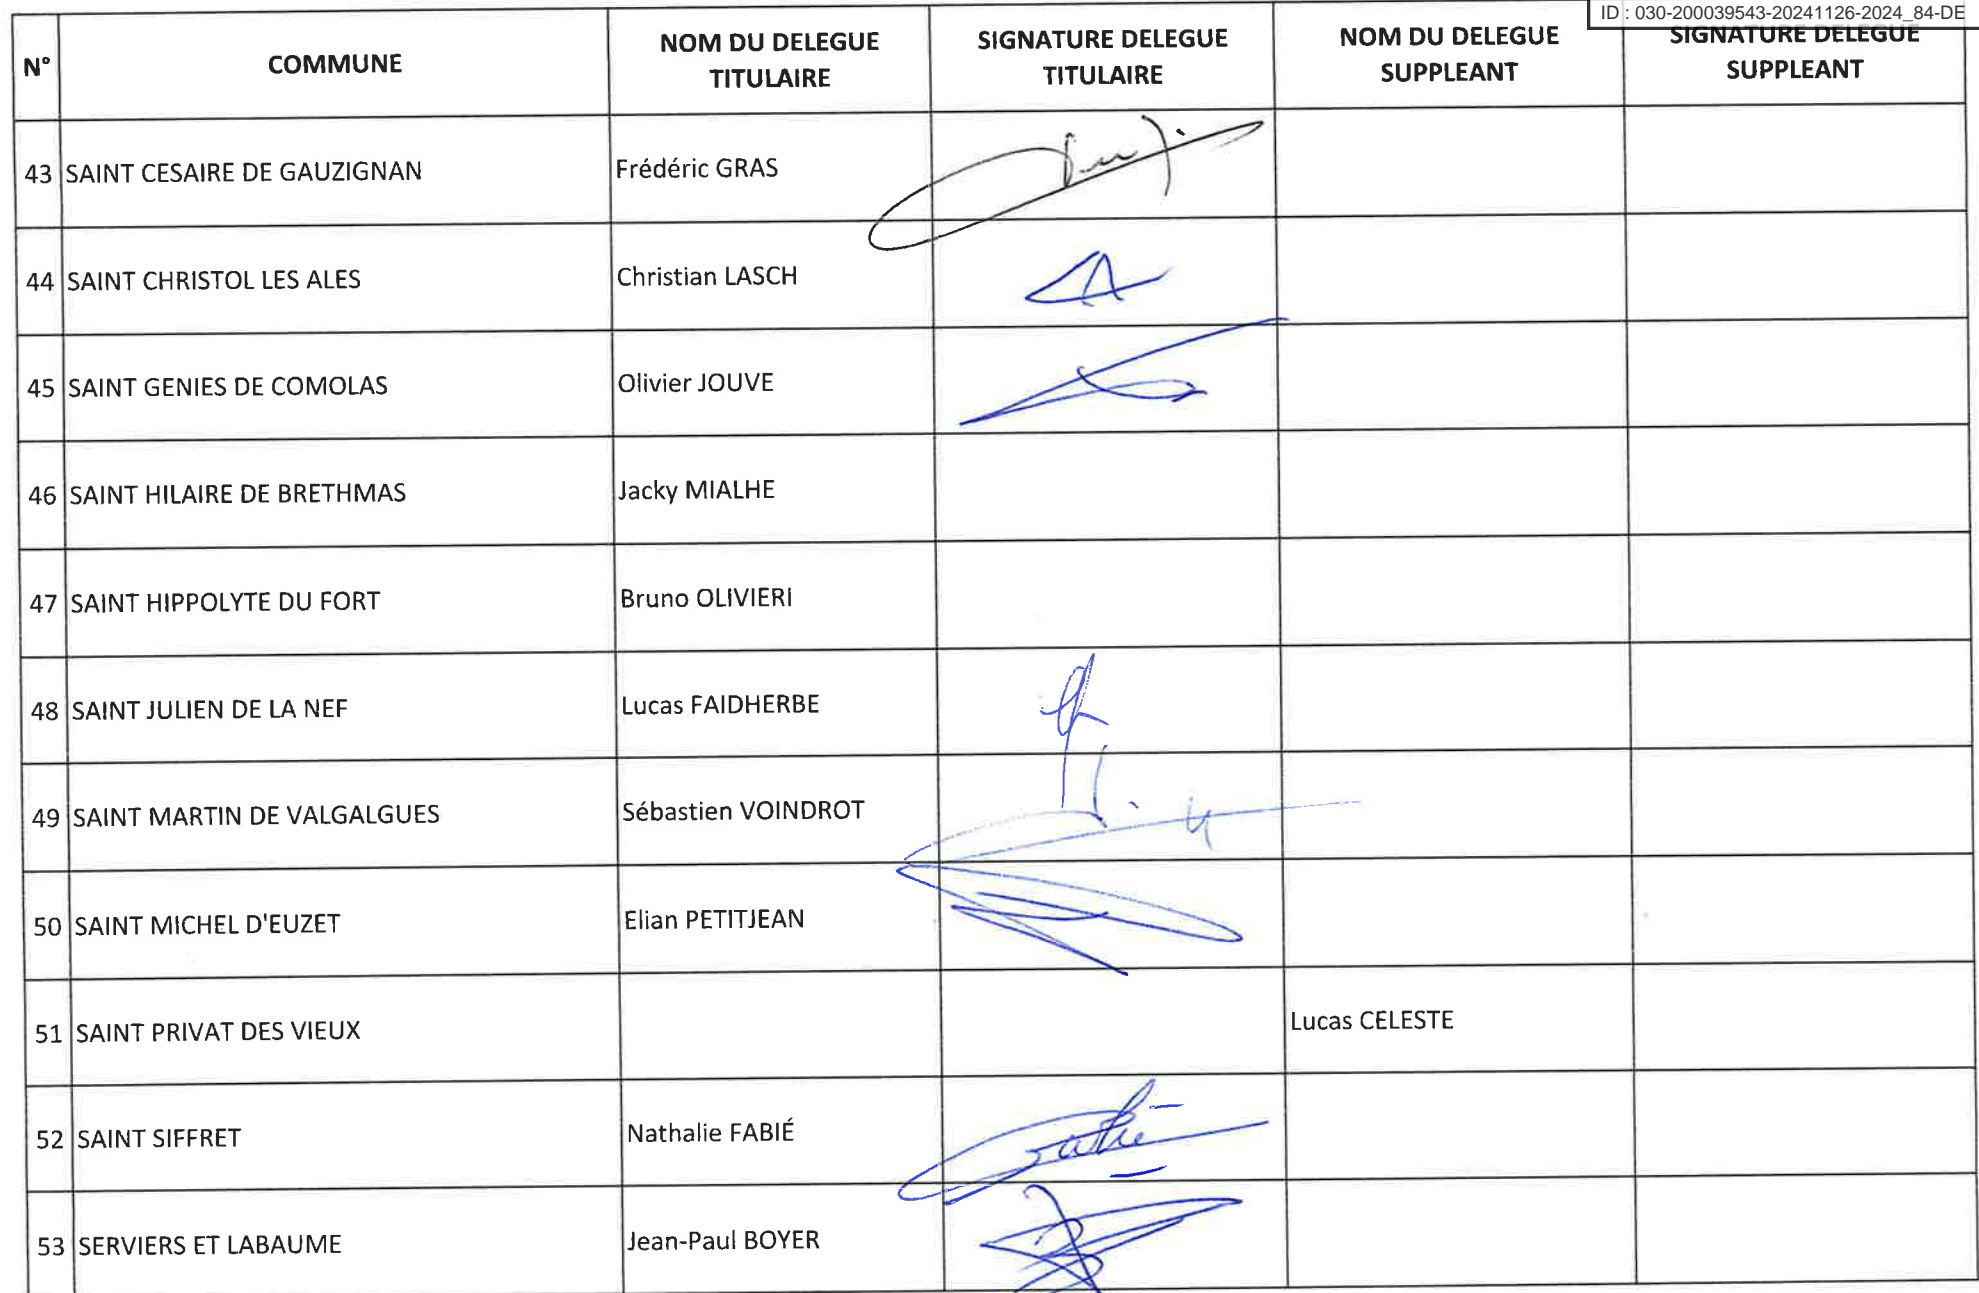 ID : 030-200039543-20241126-2024_84-DE
N° COMMUNE NOM DU DELEGUE TITULAIRE SIGNATURE DELEGUE TITULAIRE NOM DU DELEGUE SUPPLEANT SIGNATURE DELEGUE SUPPLEANT
43 SAINT CESAIRE DE GAUZIGNAN Frédéric GRAS
44 SAINT CHRISTOL LES ALES Christian LASCH
45 SAINT GENIES DE COMOLAS Olivier JOUVE
46 SAINT HILAIRE DE BRETHMAS Jacky MIALHE
47 SAINT HIPPOLYTE DU FORT Bruno OLIVIERI
48 SAINT JULIEN DE LA NEF Lucas FAIDHERBE
49 SAINT MARTIN DE VALGALGUES Sébastien VOINDROT
50 SAINT MICHEL D'EUZET Elian PETITJEAN
51 SAINT PRIVAT DES VIEUX Lucas CELESTE
52 SAINT SIFFRET Nathalie FABIÉ
53 SERVIERS ET LABAUME Jean-Paul BOYER